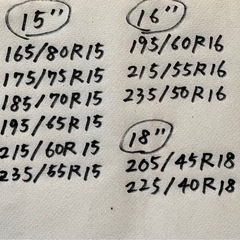 15"
165/80R15
175/75R15
185/70R15
195/65R15
215/60R15
235/55R15
16"
195/60R16
215/55R16
235/50R16
18"
205/45R18
225/40R18